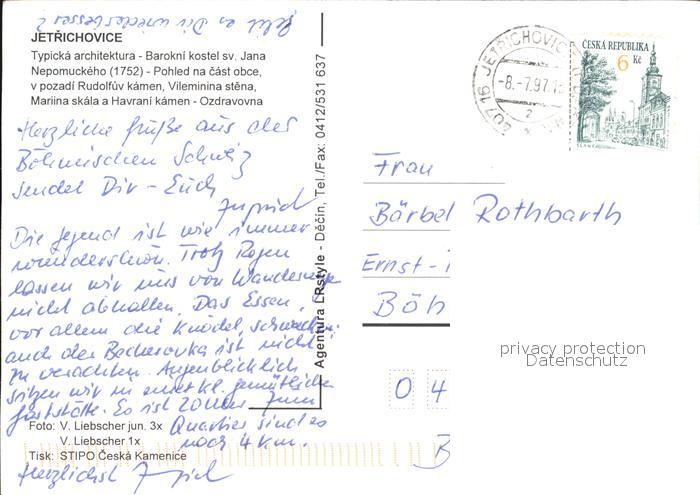 Geht es Dir wieder besser?
JETŘICHOVICE
Typická architektura - Barokní kostel sv. Jana
Nepomuckého (1752) - Pohled na část obce,
v pozadí Rudolfův kámen, Vileminina stěna,
Mariina skála a Havraní kámen - Ozdravovna
Herzliche Grüße aus der
Böhmischen Schweiz
sendet Dir - Euch
Die Gegend ist wie immer
wunderschön. Trotz Regen
lassen wir uns vom Wandern
nicht abhalten. Das Essen,
vor allem die Knödel, schmeckt,
auch der Becherovka ist nicht
zu verachten. Augenblicklich
sitzen wir in einer kl. gemütlichen
Gaststätte. Es ist 20 Uhr. Zum
Quartier sind es
noch 4 km.
Foto: V. Liebscher jun. 3x
V. Liebscher 1x
Tisk: STIPO Česká Kamenice
Herzlichst
Agentura LRstyle - Děčín, Tel./Fax: 0412/531 637
407 16 JETŘICHOVICE
-8.-7.97
ČESKÁ REPUBLIKA
6 Kč
Frau
Bärbel Rothbarth
Ernst-
Böh
04
B
privacy protection
Datenschutz